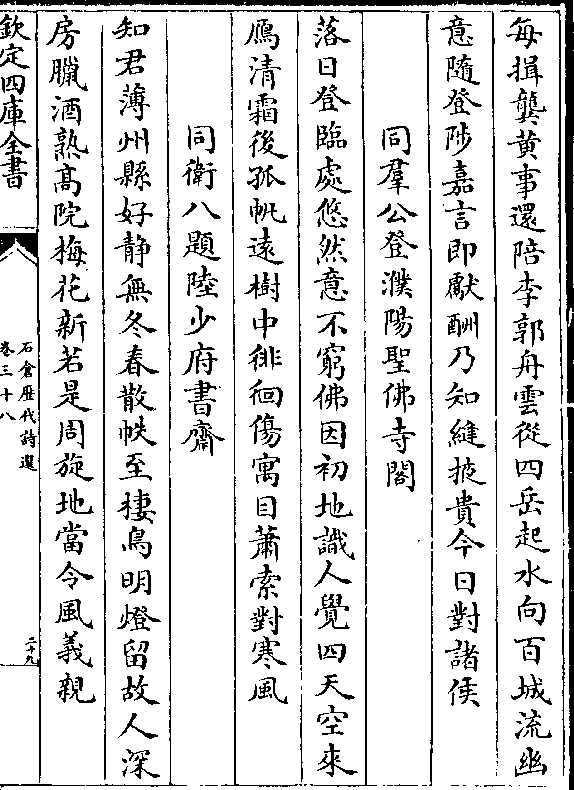 每揖龔黄事還陪李郭舟雲從四岳起水向百城流幽
意隨登陟嘉言即獻酬乃知縫掖貴今日對諸侯
同羣公登濮陽聖佛寺閣
落日登臨處悠然意不窮佛因初地識人覺四天空來
鴈清霜後孤帆遠樹中徘徊傷寓目蕭索對寒風
同衛八題陸少府書齋
知君薄州縣好静無冬春散帙至棲鳥明燈留故人深
房臘酒熟高院梅花新若是周旋地當令風義親
欽定四庫全書
石倉歴代詩選
卷三十八
二十九